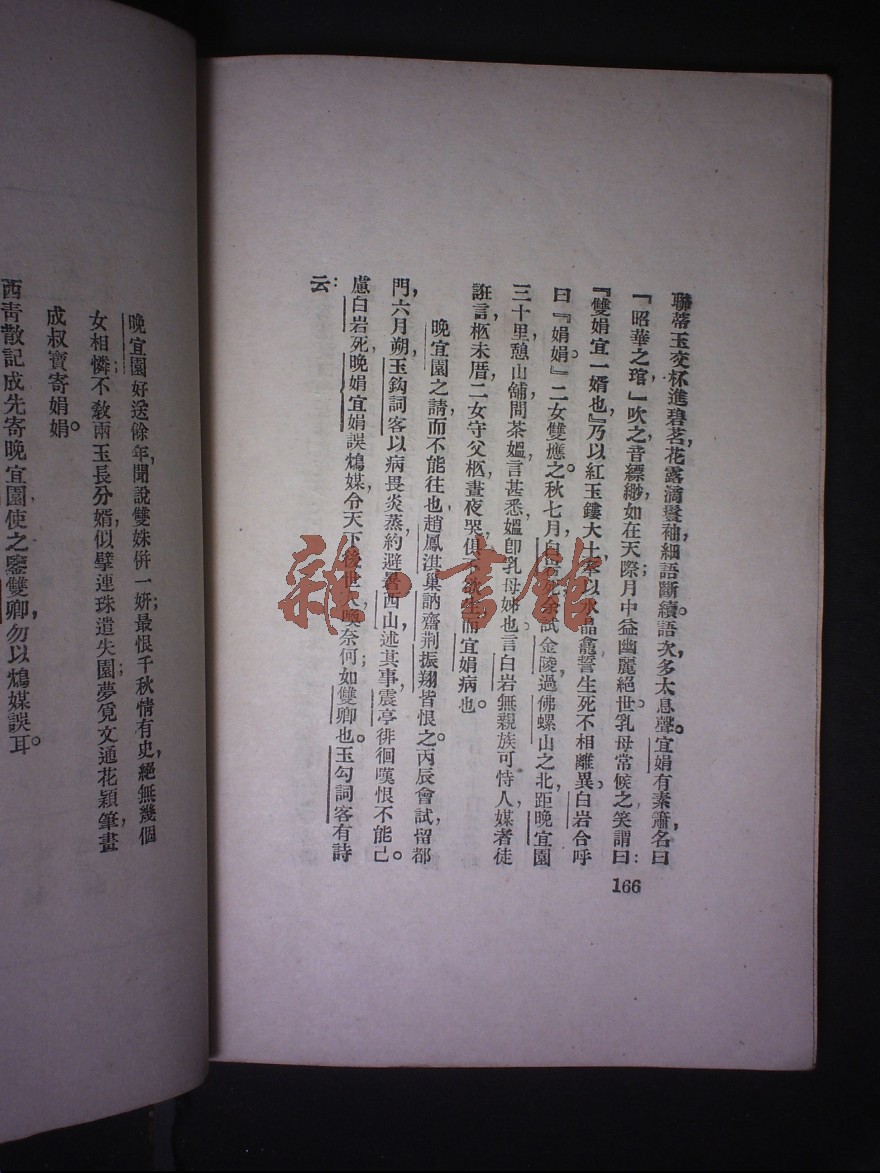 聯蒂玉交杯進碧茗，花露滴鬟袖，細語斷續，語次，多太息聲。宜娟有素簫，名曰
「昭華之琯，」吹之，音縹緲，如在天際；月中益幽麗絕世。乳母常候之，笑謂曰：
『雙娟宜一婿也，』乃以紅玉鏤大士，以水晶龕，誓生死不相離異。白岩合呼
曰『娟娟。』二女雙應之。秋七月，白岩死，余試金陵，過佛螺山之北，距晚宜園
三十里，憩山舖間，茶媼言甚悉，媼卽乳母姊也。言白岩無親族可恃，人媒者徒
誑言。柩未厝，二女守父柩，晝夜哭，俱不欲生，而宜娟病也。
晚宜園之請而不能往也，趙鳳淇巢訥齋荆振翔皆恨之。丙辰會試，留都
門，六月朔，玉鈎詞客以病畏炎蒸，約避暑西山，述其事，震亭徘徊嘆恨不能已。
慮白岩死，晚娟宜娟誤鴆媒，令天下後世人喚奈何；如雙卿也。玉勾詞客有詩
云：
166
晚宜園好送餘年，聞說雙姝併一妍；最恨千秋情有史，絕無幾個
女相憐；不敎兩玉長分婿，似擘連珠遣失園；夢覓文通花穎筆，畫
成叔寶寄娟娟。
西靑散記成，先寄晚宜園，使之鑒雙卿，勿以鴆媒誤耳。
雜·書館